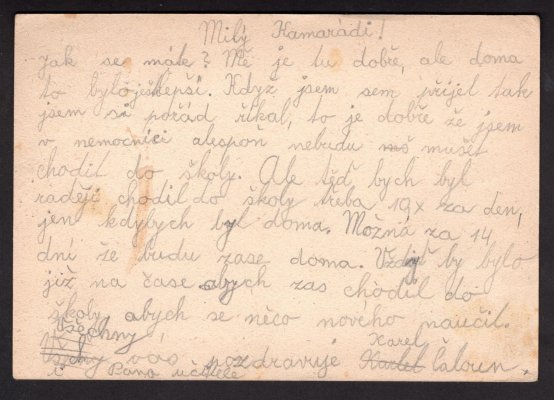 Milý Kamarádi!
Jak se máte? Mě je tu dobře, ale doma
to bylo ještě lepší. Když jsem sem přijel tak
jsem si pořád říkal, to je dobře že jsem
v nemocnici alespoň nebudu muset
chodit do školy. Ale teď bych byl
raději chodil do školy třeba 10x za den,
jen kdybych byl doma. Možná za 14
dní že budu zase doma. Vždyť by bylo
již na čase abych zas chodil do
školy abych se něco nového naučil.
Všechny
vás pozdravuje Karel Čaloun.
i Pana učitele